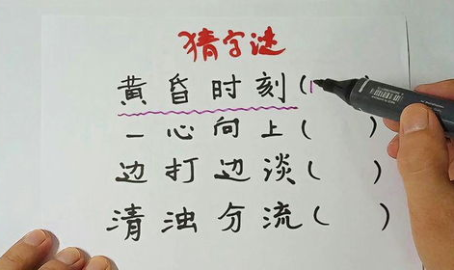 猜字谜
黄昏时刻(
一心向上( )
边打边谈( )
清浊分流( )